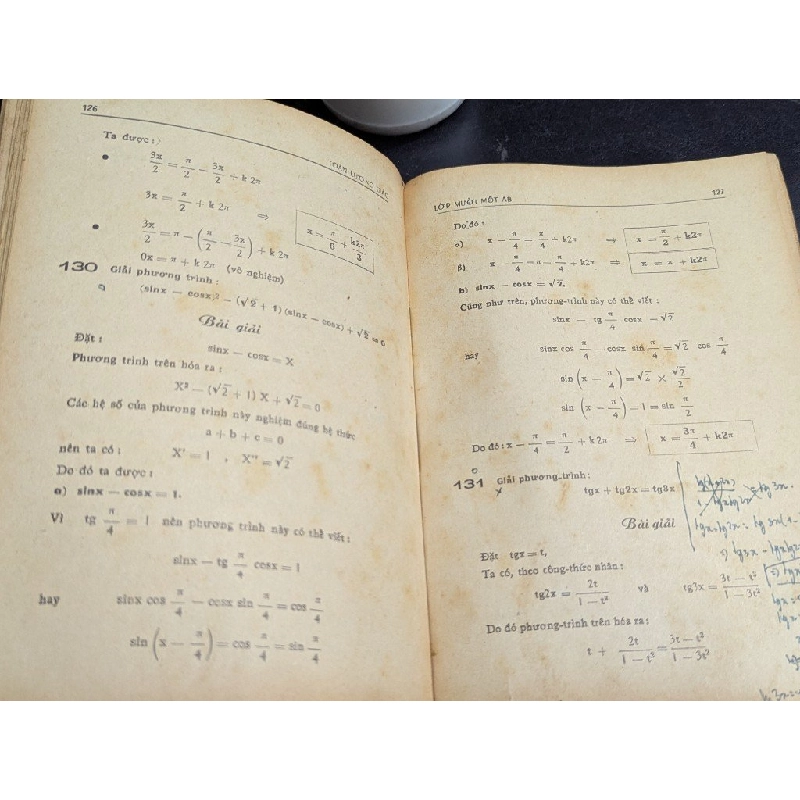 126
Ta được :
• 3x/2 = π/2 − 3x/2 + k 2π
3x = π/2 + k 2π ⇒ x = π/6 + k2π/3
• 3x/2 = π − (π/2 − 3x/2) + k 2π
0x = π + k 2π (vô nghiệm)
130 Giải phương trình :
(sinx − cosx)² − (√2 + 1) (sinx − cosx) + √2 = 0
Bài giải
Đặt : sinx − cosx = X
Phương trình trên hóa ra :
X² − (√2 + 1) X + √2 = 0
Các hệ số của phương trình này nghiệm đúng hệ thức
a + b + c = 0
nên ta có : X' = 1 , X'' = √2
Do đó ta được :
a) sinx − cosx = 1.
Vì tg π/4 = 1 nên phương trình này có thể viết :
sinx − tg π/4 cosx = 1
hay sinx cos π/4 − cosx sin π/4 = cos π/4
sin (x − π/4) = cos π/4 = sin π/4
LỚP MƯỜI MỘT AB 127
Do đó :
α) x − π/4 = π/4 + k2π ⇒ x = π/2 + k2π
β) x − π/4 = π − π/4 + k2π ⇒ x = π + k2π
b) sinx − cosx = √2.
Cũng như trên, phương-trình này có thể viết :
sinx − tg π/4 cosx = √2
hay sinx cos π/4 − cosx sin π/4 = √2 cos π/4
sin (x − π/4) = √2 X √2/2
sin (x − π/4) = 1 = sin π/2
Do đó : x − π/4 = π/2 + k 2π ⇒ x = 3π/4 + k2π
131 Giải phương-trình :
tgx + tg2x = tg3x
Bài giải
Đặt tgx = t,
Ta có, theo công-thức nhân :
tg2x = 2t/1 − t² và tg3x = 3t − t³/1 − 3t²
Do đó phương-trình trên hóa ra :
t + 2t/1 − t² = 3t − t³/1 − 3t²